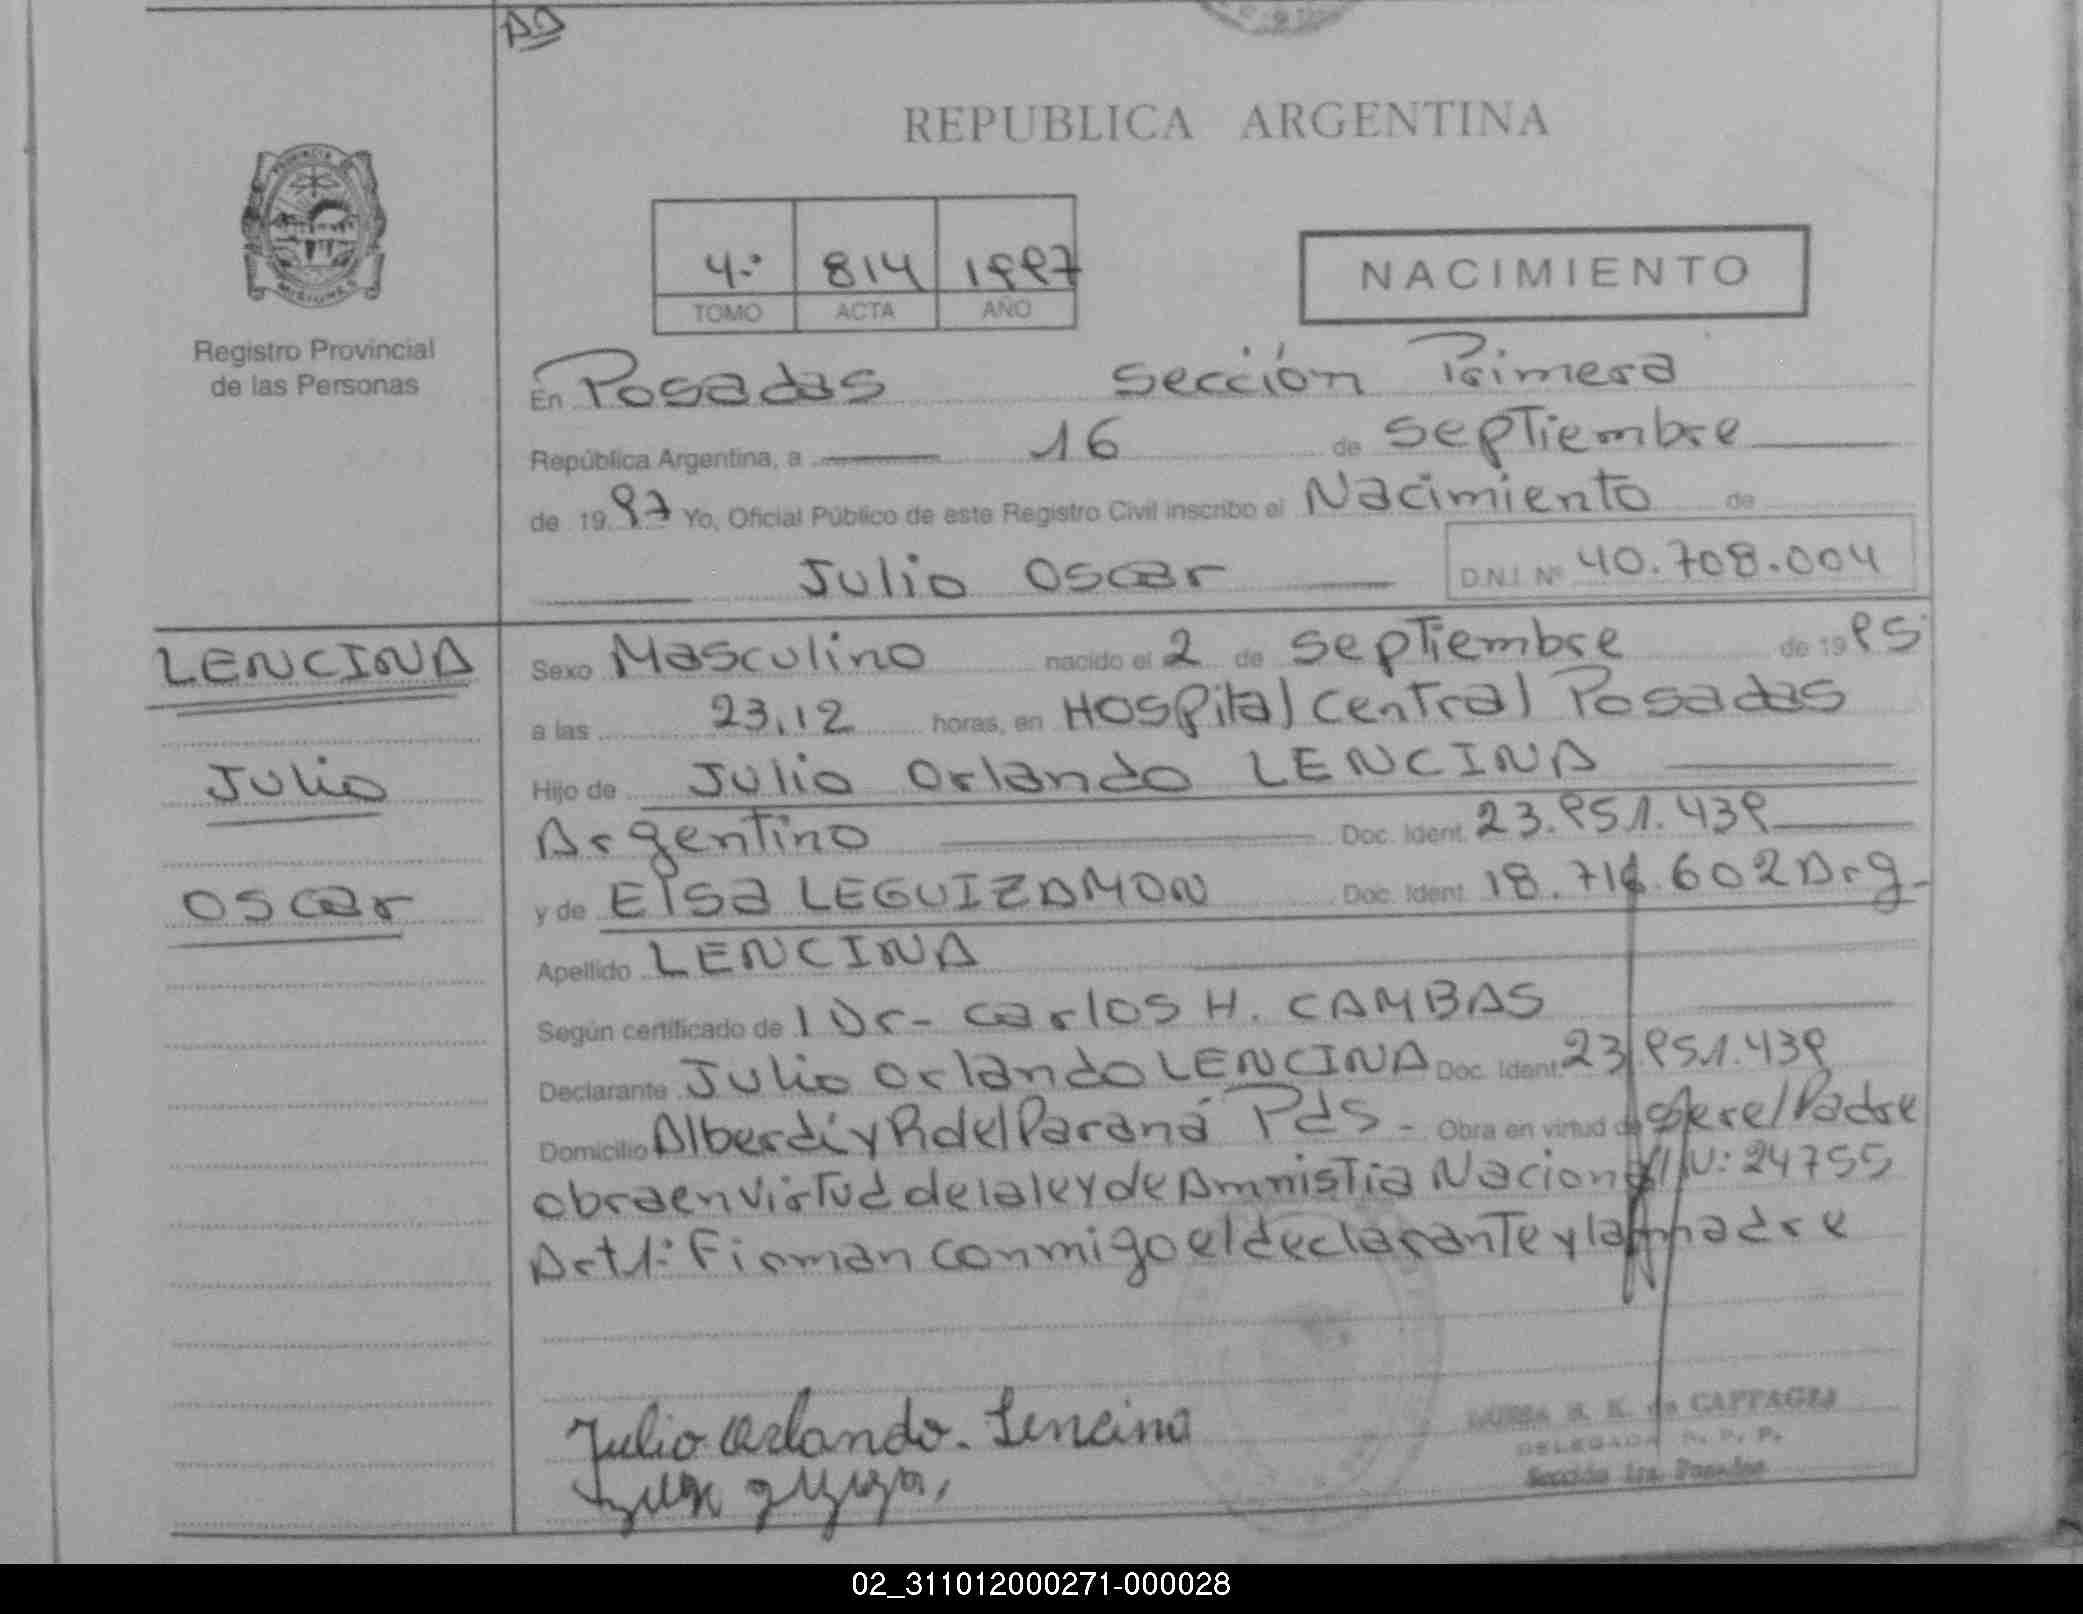 REPUBLICA ARGENTINA
PROVINCIA
MISIONES
Registro Provincial
de las Personas
4.° 814 1997
TOMO ACTA AÑO
NACIMIENTO
En Posadas Sección Primera
República Argentina, a 16 de septiembre
de 1997 Yo, Oficial Público de este Registro Civil inscribo el Nacimiento de
Julio Oscar D.N.I. Nº 40.708.004
LENCINA
Julio
Oscar
Sexo Masculino nacido el 2 de septiembre de 1995
a las 23,12 horas, en Hospital Central Posadas
Hijo de Julio Orlando LENCINA
Argentino Doc. Ident. 23.951.439
y de Elsa LEGUIZAMON Doc. Ident. 18.716.602 Arg-
Apellido LENCINA
Según certificado de l Dr- Carlos H. CAMBAS
Declarante Julio Orlando LENCINA Doc. Ident. 23.951.439
Domicilio Alberdi y R del Paraná Pds - Obra en virtud de ser el Padre
obra en virtud de la ley de Amnistia Nacional N: 24755
Art 1: Firman conmigo el declarante y la madre
Julio Orlando. Lencina
LUISA de CAFFAGGI
DELEGADA R. P. P.
Sección 1ra. Posadas
02_311012000271-000028